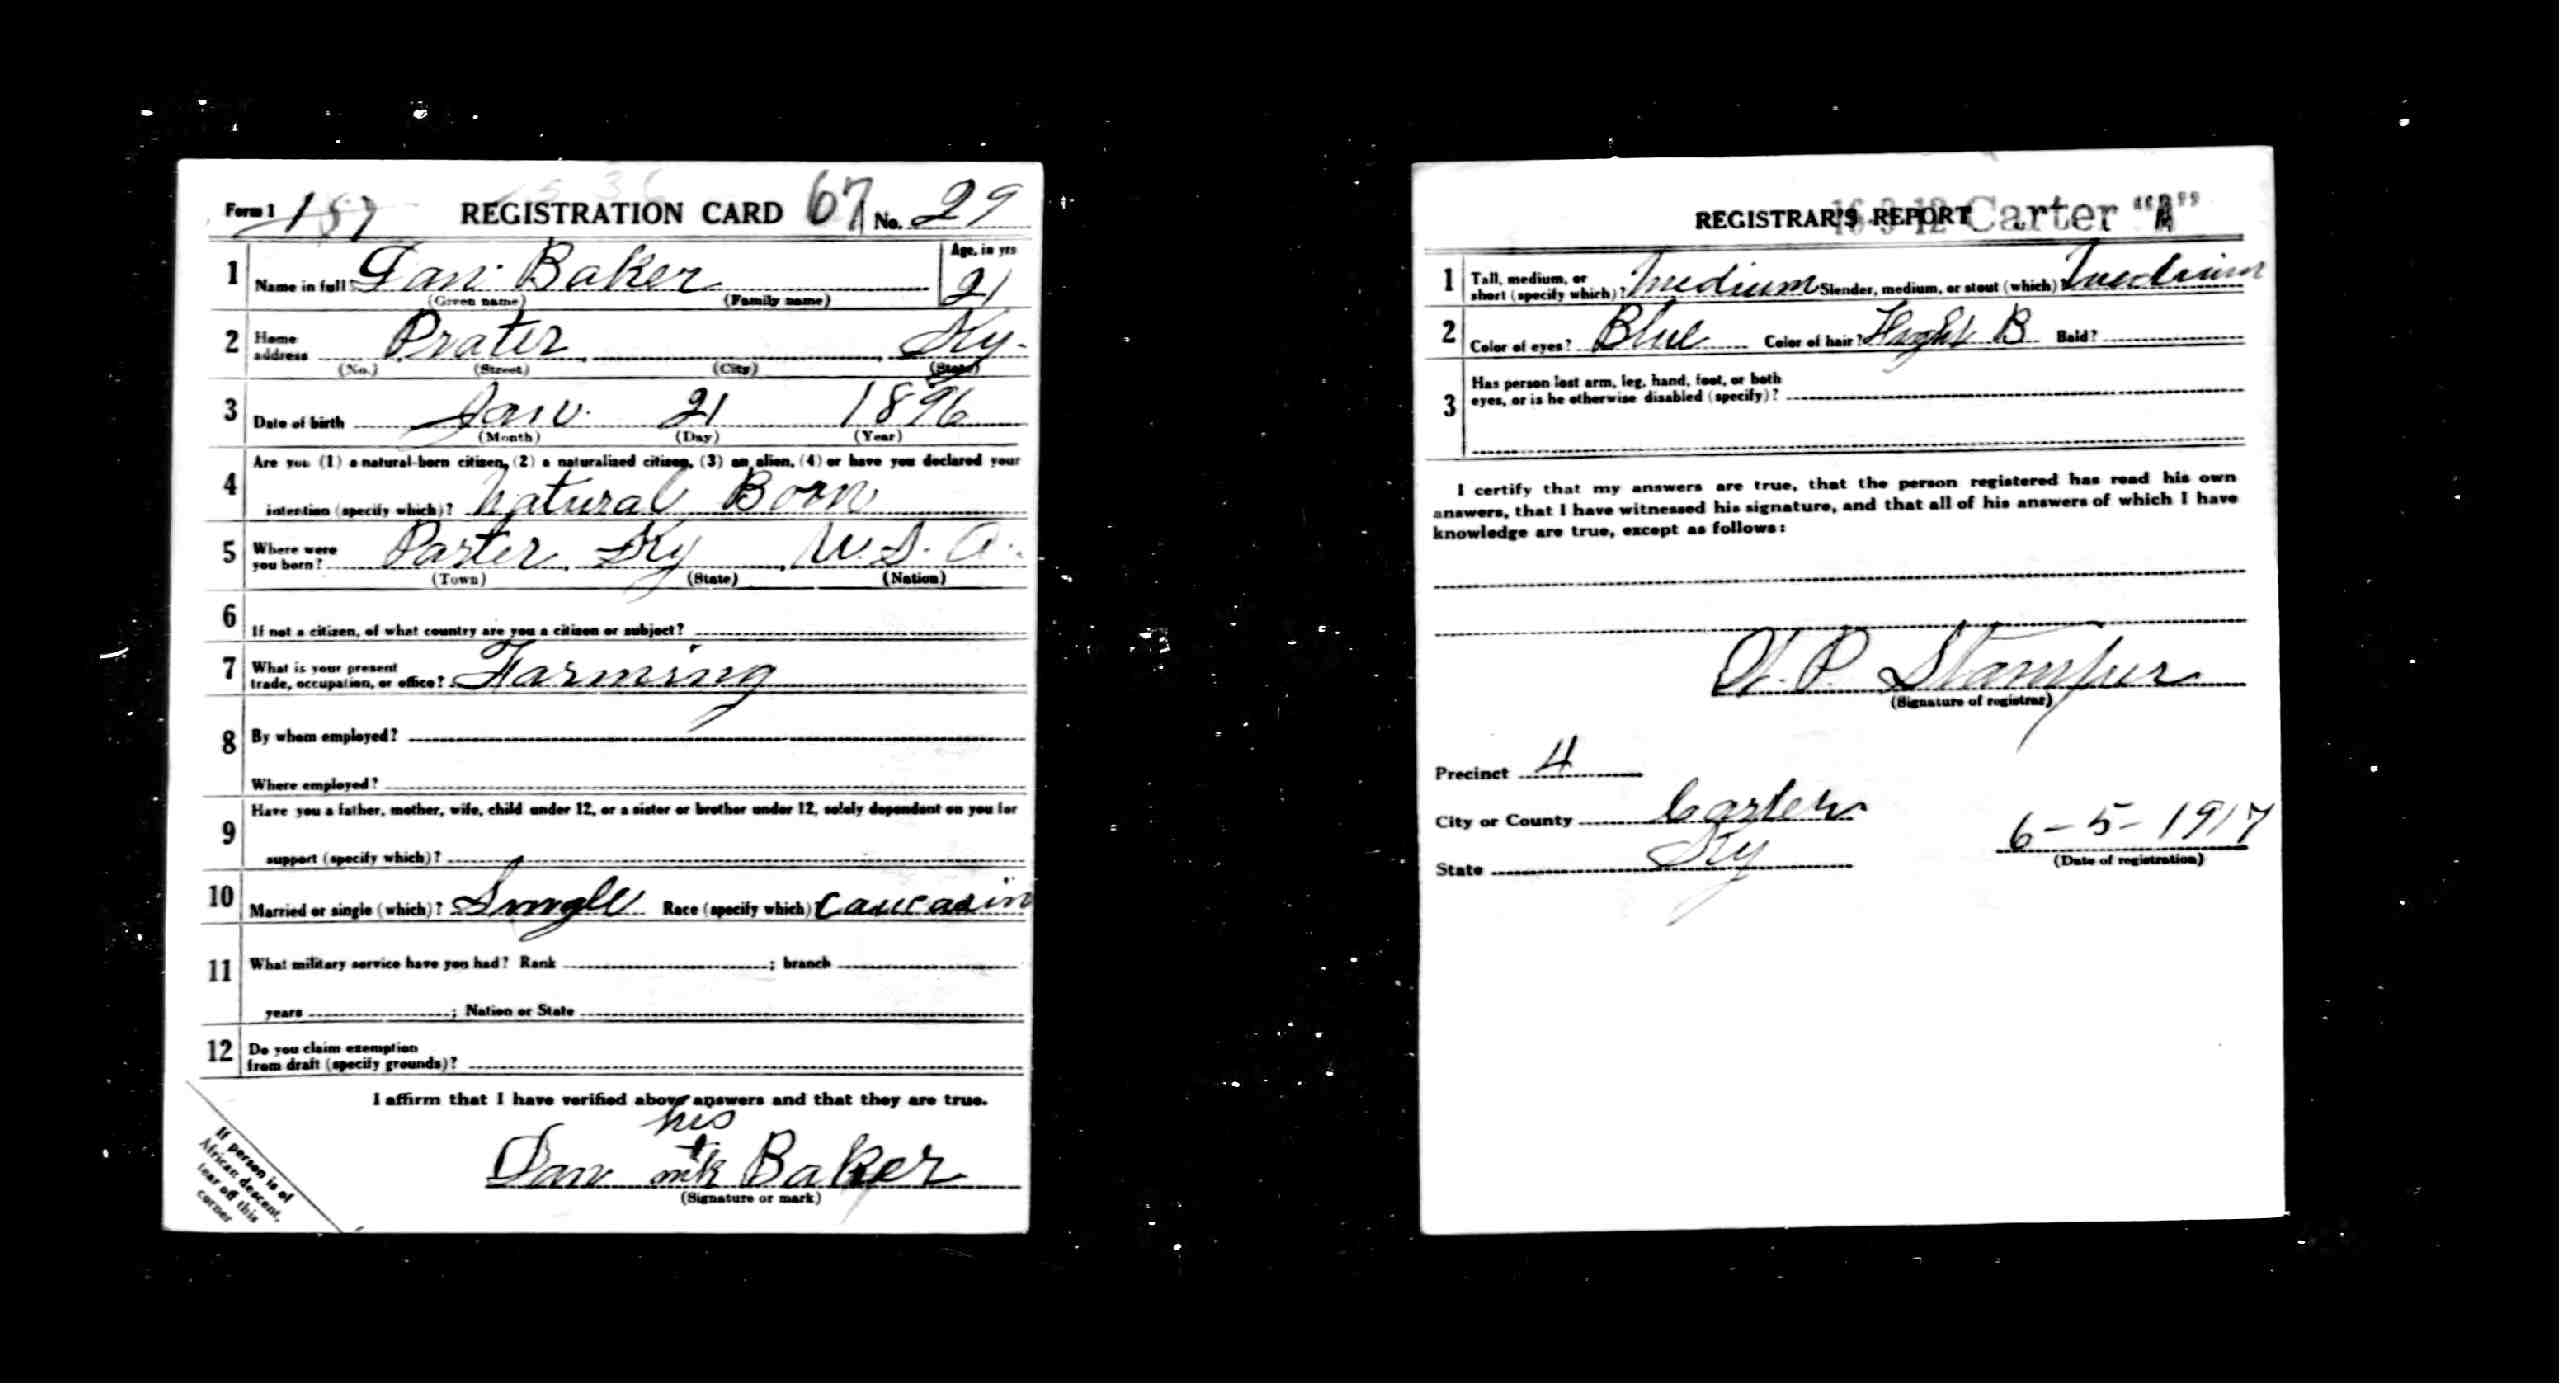 Form 1 187 REGISTRATION CARD 67 No. 29
1 Name in full Dan Baker Age, in yrs 21
(Given name) (Family name)
2 Home address Prater Ky.
(No.) (Street) (City) (State)
3 Date of birth Jan. 21 1896
(Month) (Day) (Year)
Are you (1) a natural-born citizen, (2) a naturalized citizen, (3) an alien, (4) or have you declared your
4 intention (specify which)? Natural Born
5 Where were you born? Parter Ky U.S.A.
(Town) (State) (Nation)
6 If not a citizen, of what country are you a citizen or subject?
7 What is your present trade, occupation, or office? Farming
8 By whom employed?
Where employed?
Have you a father, mother, wife, child under 12, or a sister or brother under 12, solely dependent on you for
9 support (specify which)?
10 Married or single (which)? Single Race (specify which) Caucasin
11 What military service have you had? Rank ; branch
years ; Nation or State
12 Do you claim exemption from draft (specify grounds)?
I affirm that I have verified above answers and that they are true.
his
Dan mk Baker
(Signature or mark)
If person is of
African descent,
tear off this
corner
REGISTRAR'S REPORT Carter "A"
1 Tall, medium, or short (specify which)? Medium Slender, medium, or stout (which)? Medium
2 Color of eyes? Blue Color of hair? B Bald?
3 Has person lost arm, leg, hand, foot, or both eyes, or is he otherwise disabled (specify)?
I certify that my answers are true, that the person registered has read his own
answers, that I have witnessed his signature, and that all of his answers of which I have
knowledge are true, except as follows:
P. Stamper
(Signature of registrar)
Precinct 4
City or County Carter
State Ky 6-5-1917
(Date of registration)